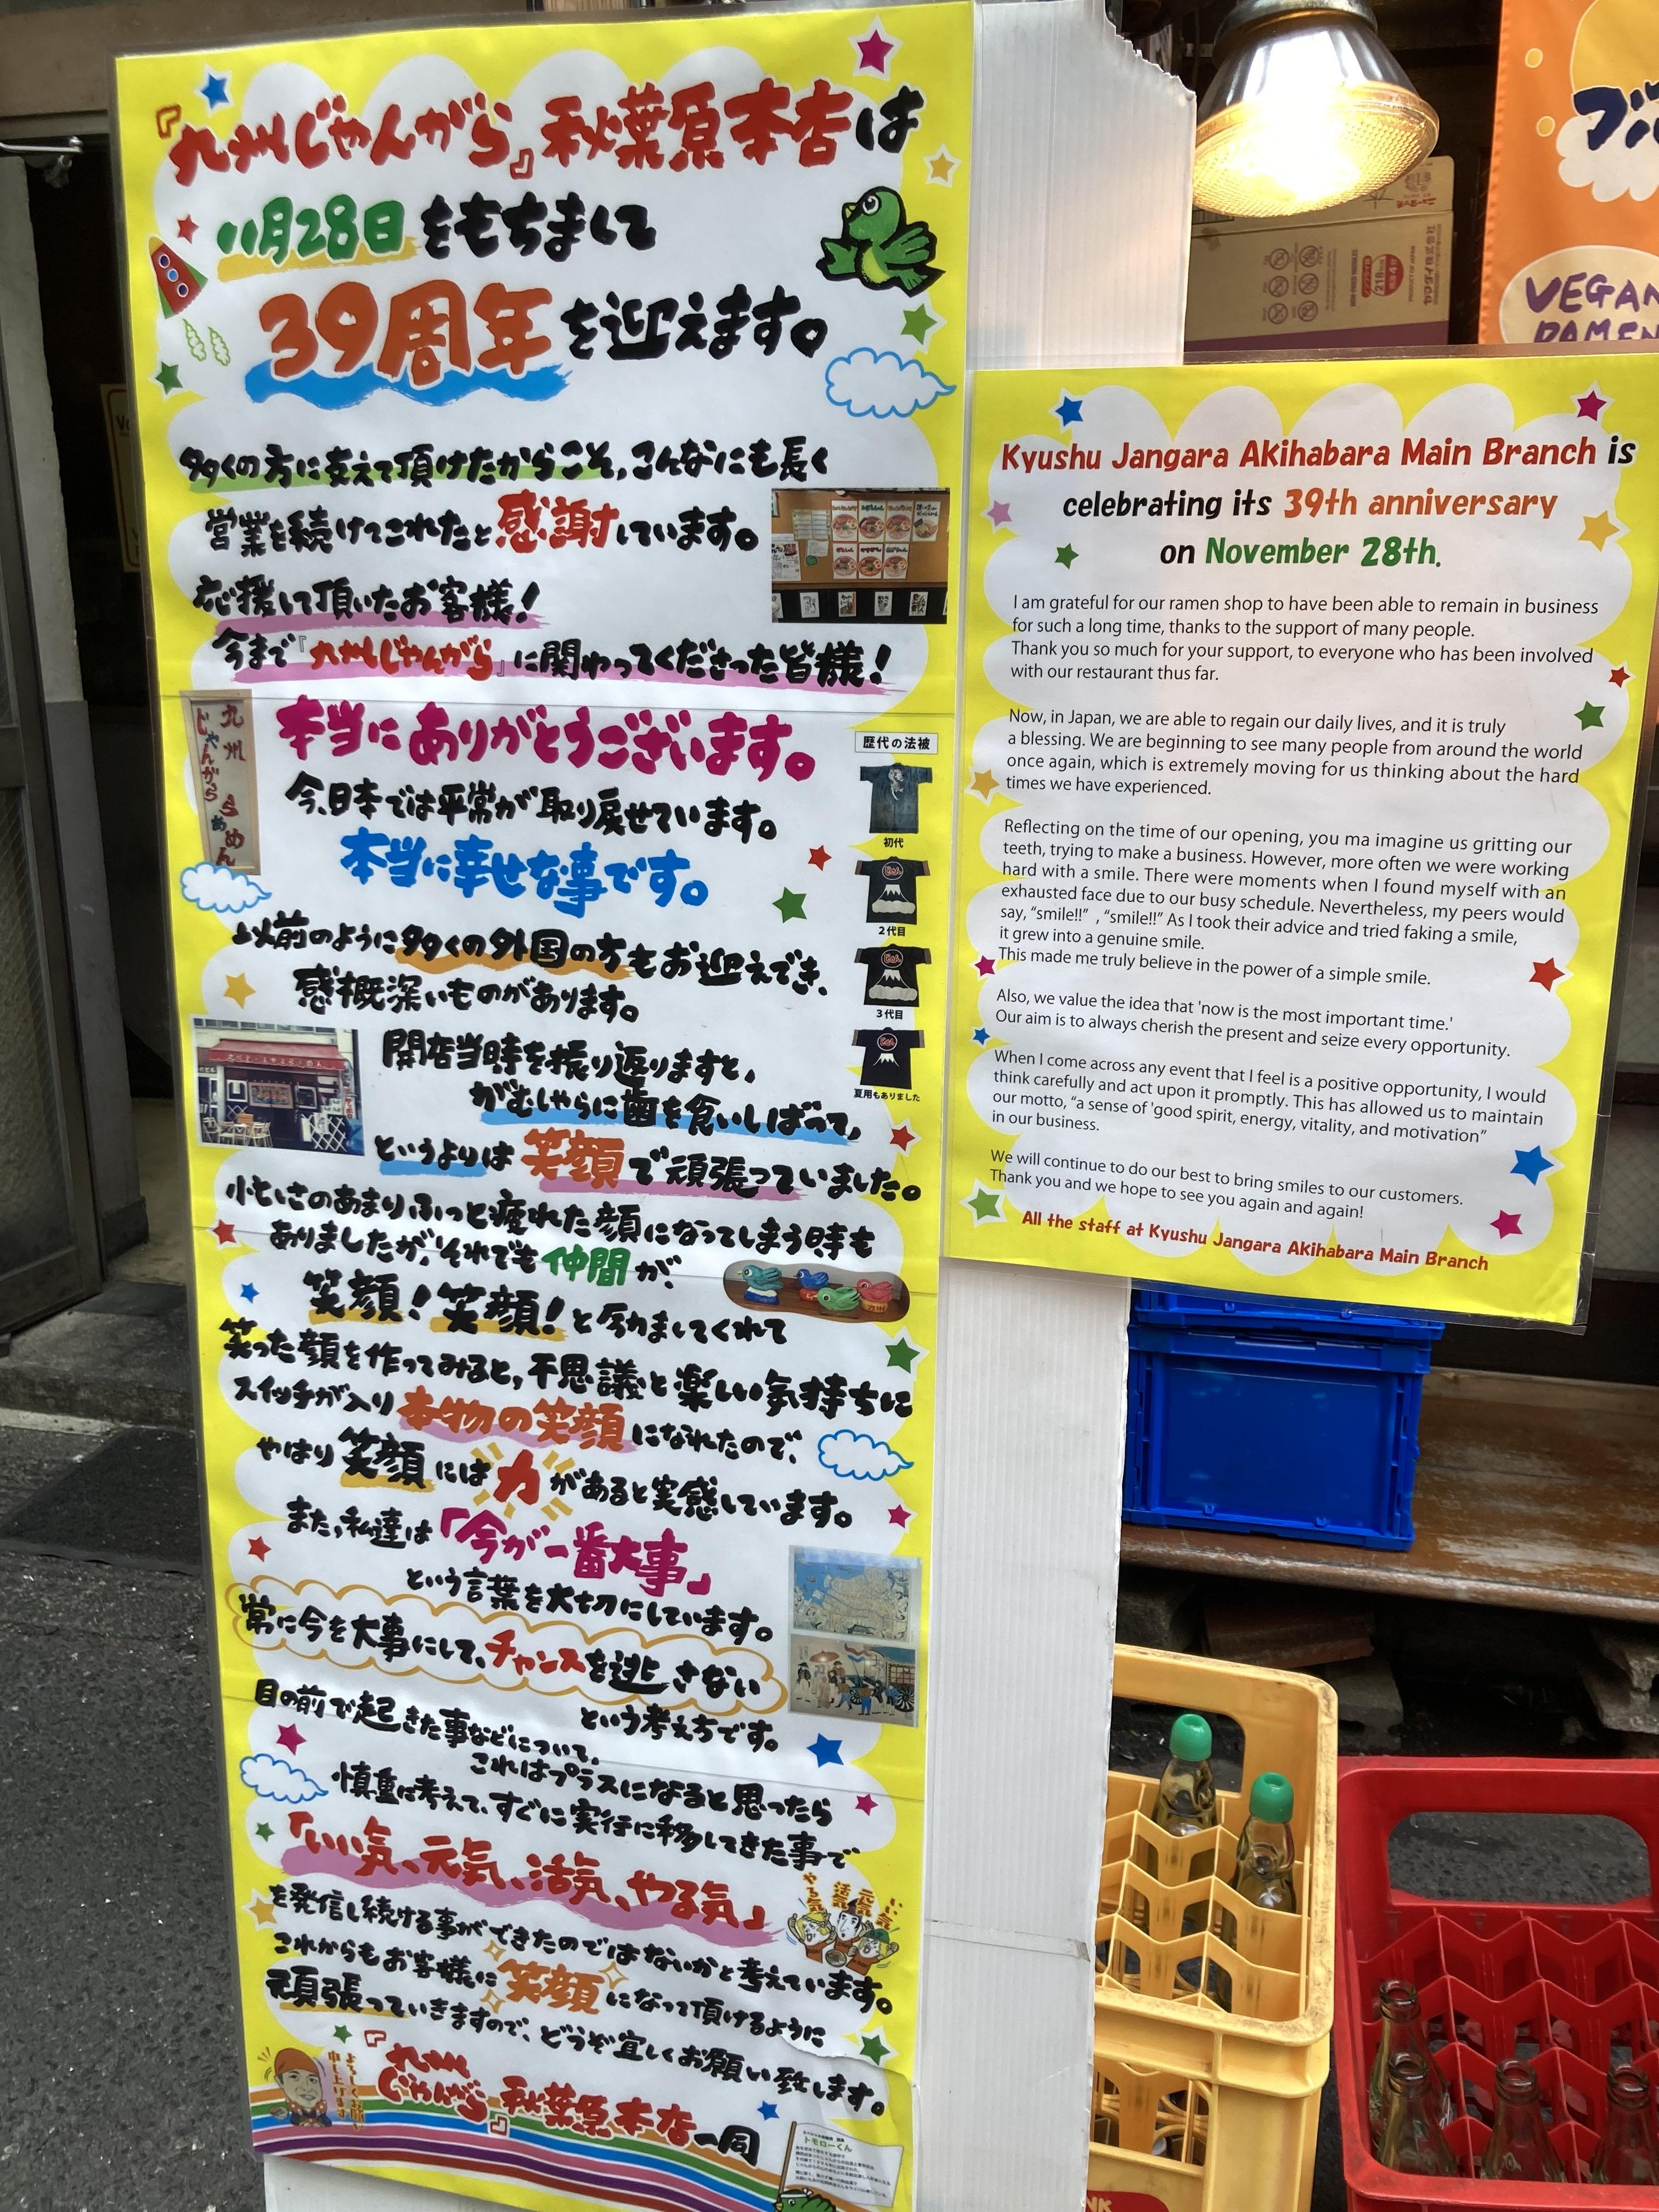 『九州じゃんがら』秋葉原本店は
11月28日をもちまして
39周年を迎えます。
多くの方に支えて頂けたからこそ、こんなにも長く
営業を続けてこれたと感謝しています。
応援して頂いたお客様!
今まで『九州じゃんがら』に関わってくださった皆様!
本当にありがとうございます。
九州じゃんがららあめん
今、日本では平常が取り戻せています。
本当に幸せな事です。
以前のように多くの外国の方もお迎えでき、
感慨深いものがあります。
歴代の法被
初代
2代目
3代目
夏用もありました
開店当時を振り返りますと、
がむしゃらに歯を食いしばって、
というよりは笑顔で頑張っていました。
忙しさのあまりふっと疲れた顔になってしまう時も
ありましたが、それでも仲間が、
笑顔!笑顔!と励ましてくれて
笑った顔を作ってみると、不思議と楽しい気持ちに
スイッチが入り本物の笑顔になれたので、
やはり笑顔には力があると実感しています。
また、私達は「今が一番大事」
という言葉を大切にしています。
常に今を大事にして、チャンスを逃さない
という考え方です。
目の前で起きた事などについて、
これはプラスになると思ったら
慎重に考えて、すぐに実行に移してきた事で
「いい気、元気、活気、やる気」
やる気 活気 元気 いい気
を発信し続ける事ができたのではないかと考えています。
これからもお客様に笑顔になって頂けるように
頑張っていきますので、どうぞ宜しくお願い致します。
よろしくお願い申し上げます
『九州じゃんがら』秋葉原本店一同
トモローくん
Kyushu Jangara Akihabara Main Branch is
celebrating its 39th anniversary
on November 28th.
I am grateful for our ramen shop to have been able to remain in business
for such a long time, thanks to the support of many people.
Thank you so much for your support, to everyone who has been involved
with our restaurant thus far.
Now, in Japan, we are able to regain our daily lives, and it is truly
a blessing. We are beginning to see many people from around the world
once again, which is extremely moving for us thinking about the hard
times we have experienced.
Reflecting on the time of our opening, you ma imagine us gritting our
teeth, trying to make a business. However, more often we were working
hard with a smile. There were moments when I found myself with an
exhausted face due to our busy schedule. Nevertheless, my peers would
say, “smile!!” , “smile!!” As I took their advice and tried faking a smile,
it grew into a genuine smile.
This made me truly believe in the power of a simple smile.
Also, we value the idea that 'now is the most important time.'
Our aim is to always cherish the present and seize every opportunity.
When I come across any event that I feel is a positive opportunity, I would
think carefully and act upon it promptly. This has allowed us to maintain
our motto, “a sense of 'good spirit, energy, vitality, and motivation”
in our business.
We will continue to do our best to bring smiles to our customers.
Thank you and we hope to see you again and again!
All the staff at Kyushu Jangara Akihabara Main Branch
VEGAN
RAMEN